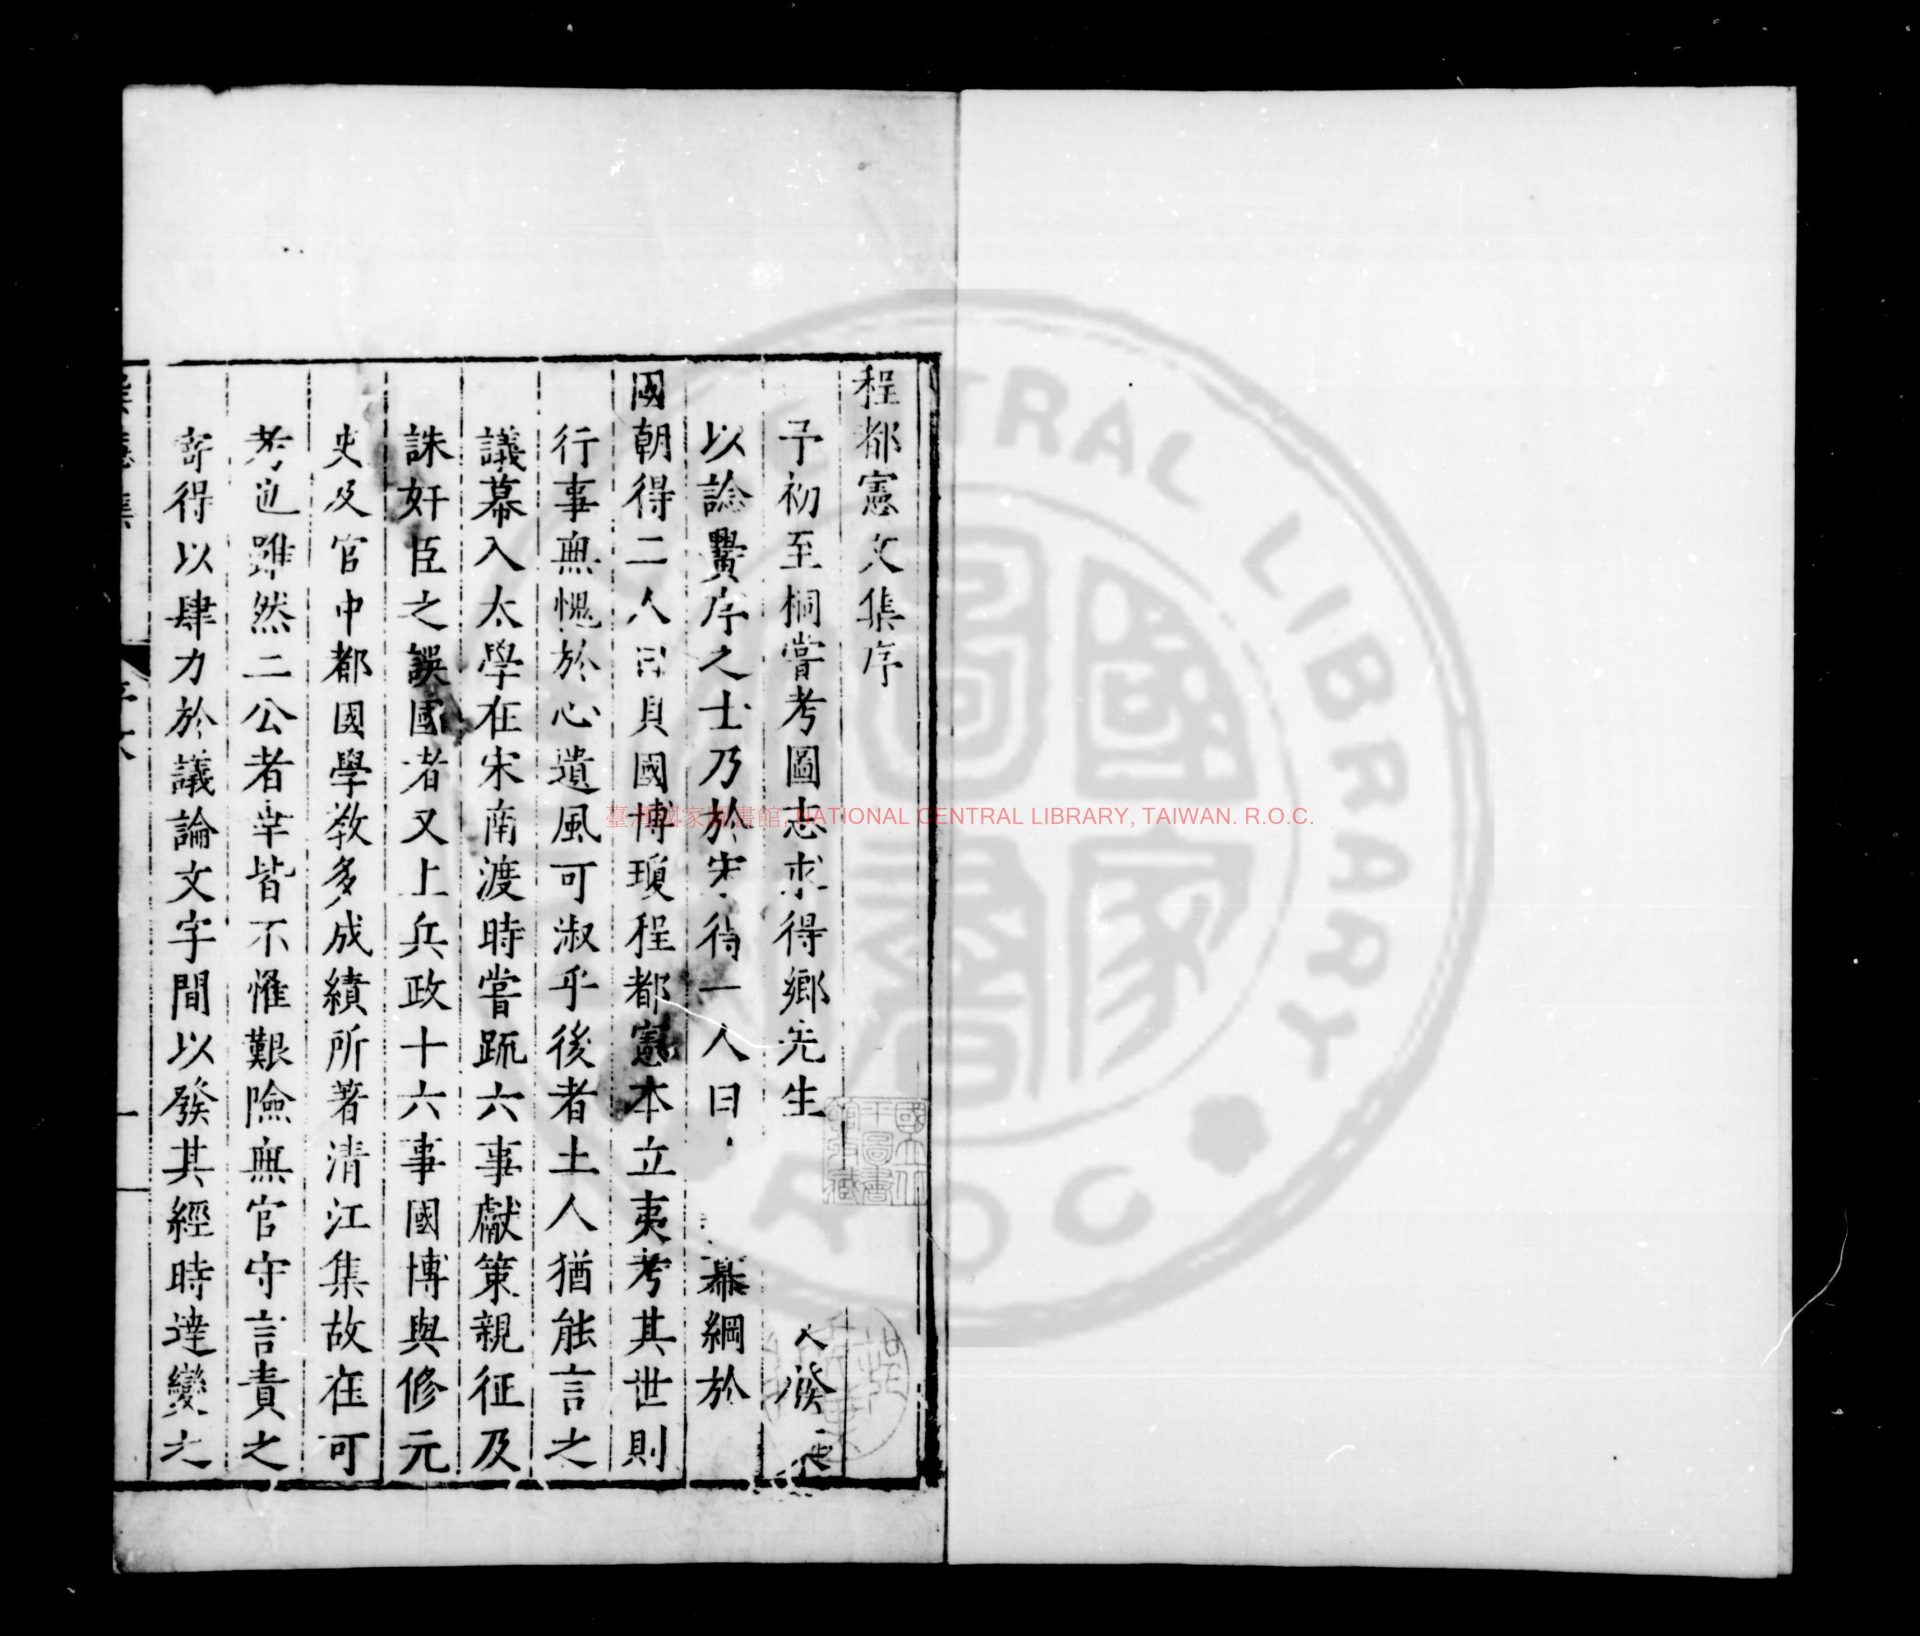 程都憲文集序
予初至桐嘗考圖志求得鄉先生
以諗黌序之士乃於宋得一人曰 幕綱於
國朝得二人曰貝國博瓊程都憲本立夷考其世則
行事無愧於心遺風可淑乎後者土人猶能言之
議幕入太學在宋南渡時嘗䟽六事獻策親征及
誅奸臣之誤國者又上兵政十六事國博與修元
史及官中都國學教多成績所著清江集故在可
考也雖然二公者幸皆不惟艱險無官守言責之
寄得以肆力於議論文字間以發其經時達變之
臺灣國家圖書館, NATIONAL CENTRAL LIBRARY, TAIWAN. R.O.C.